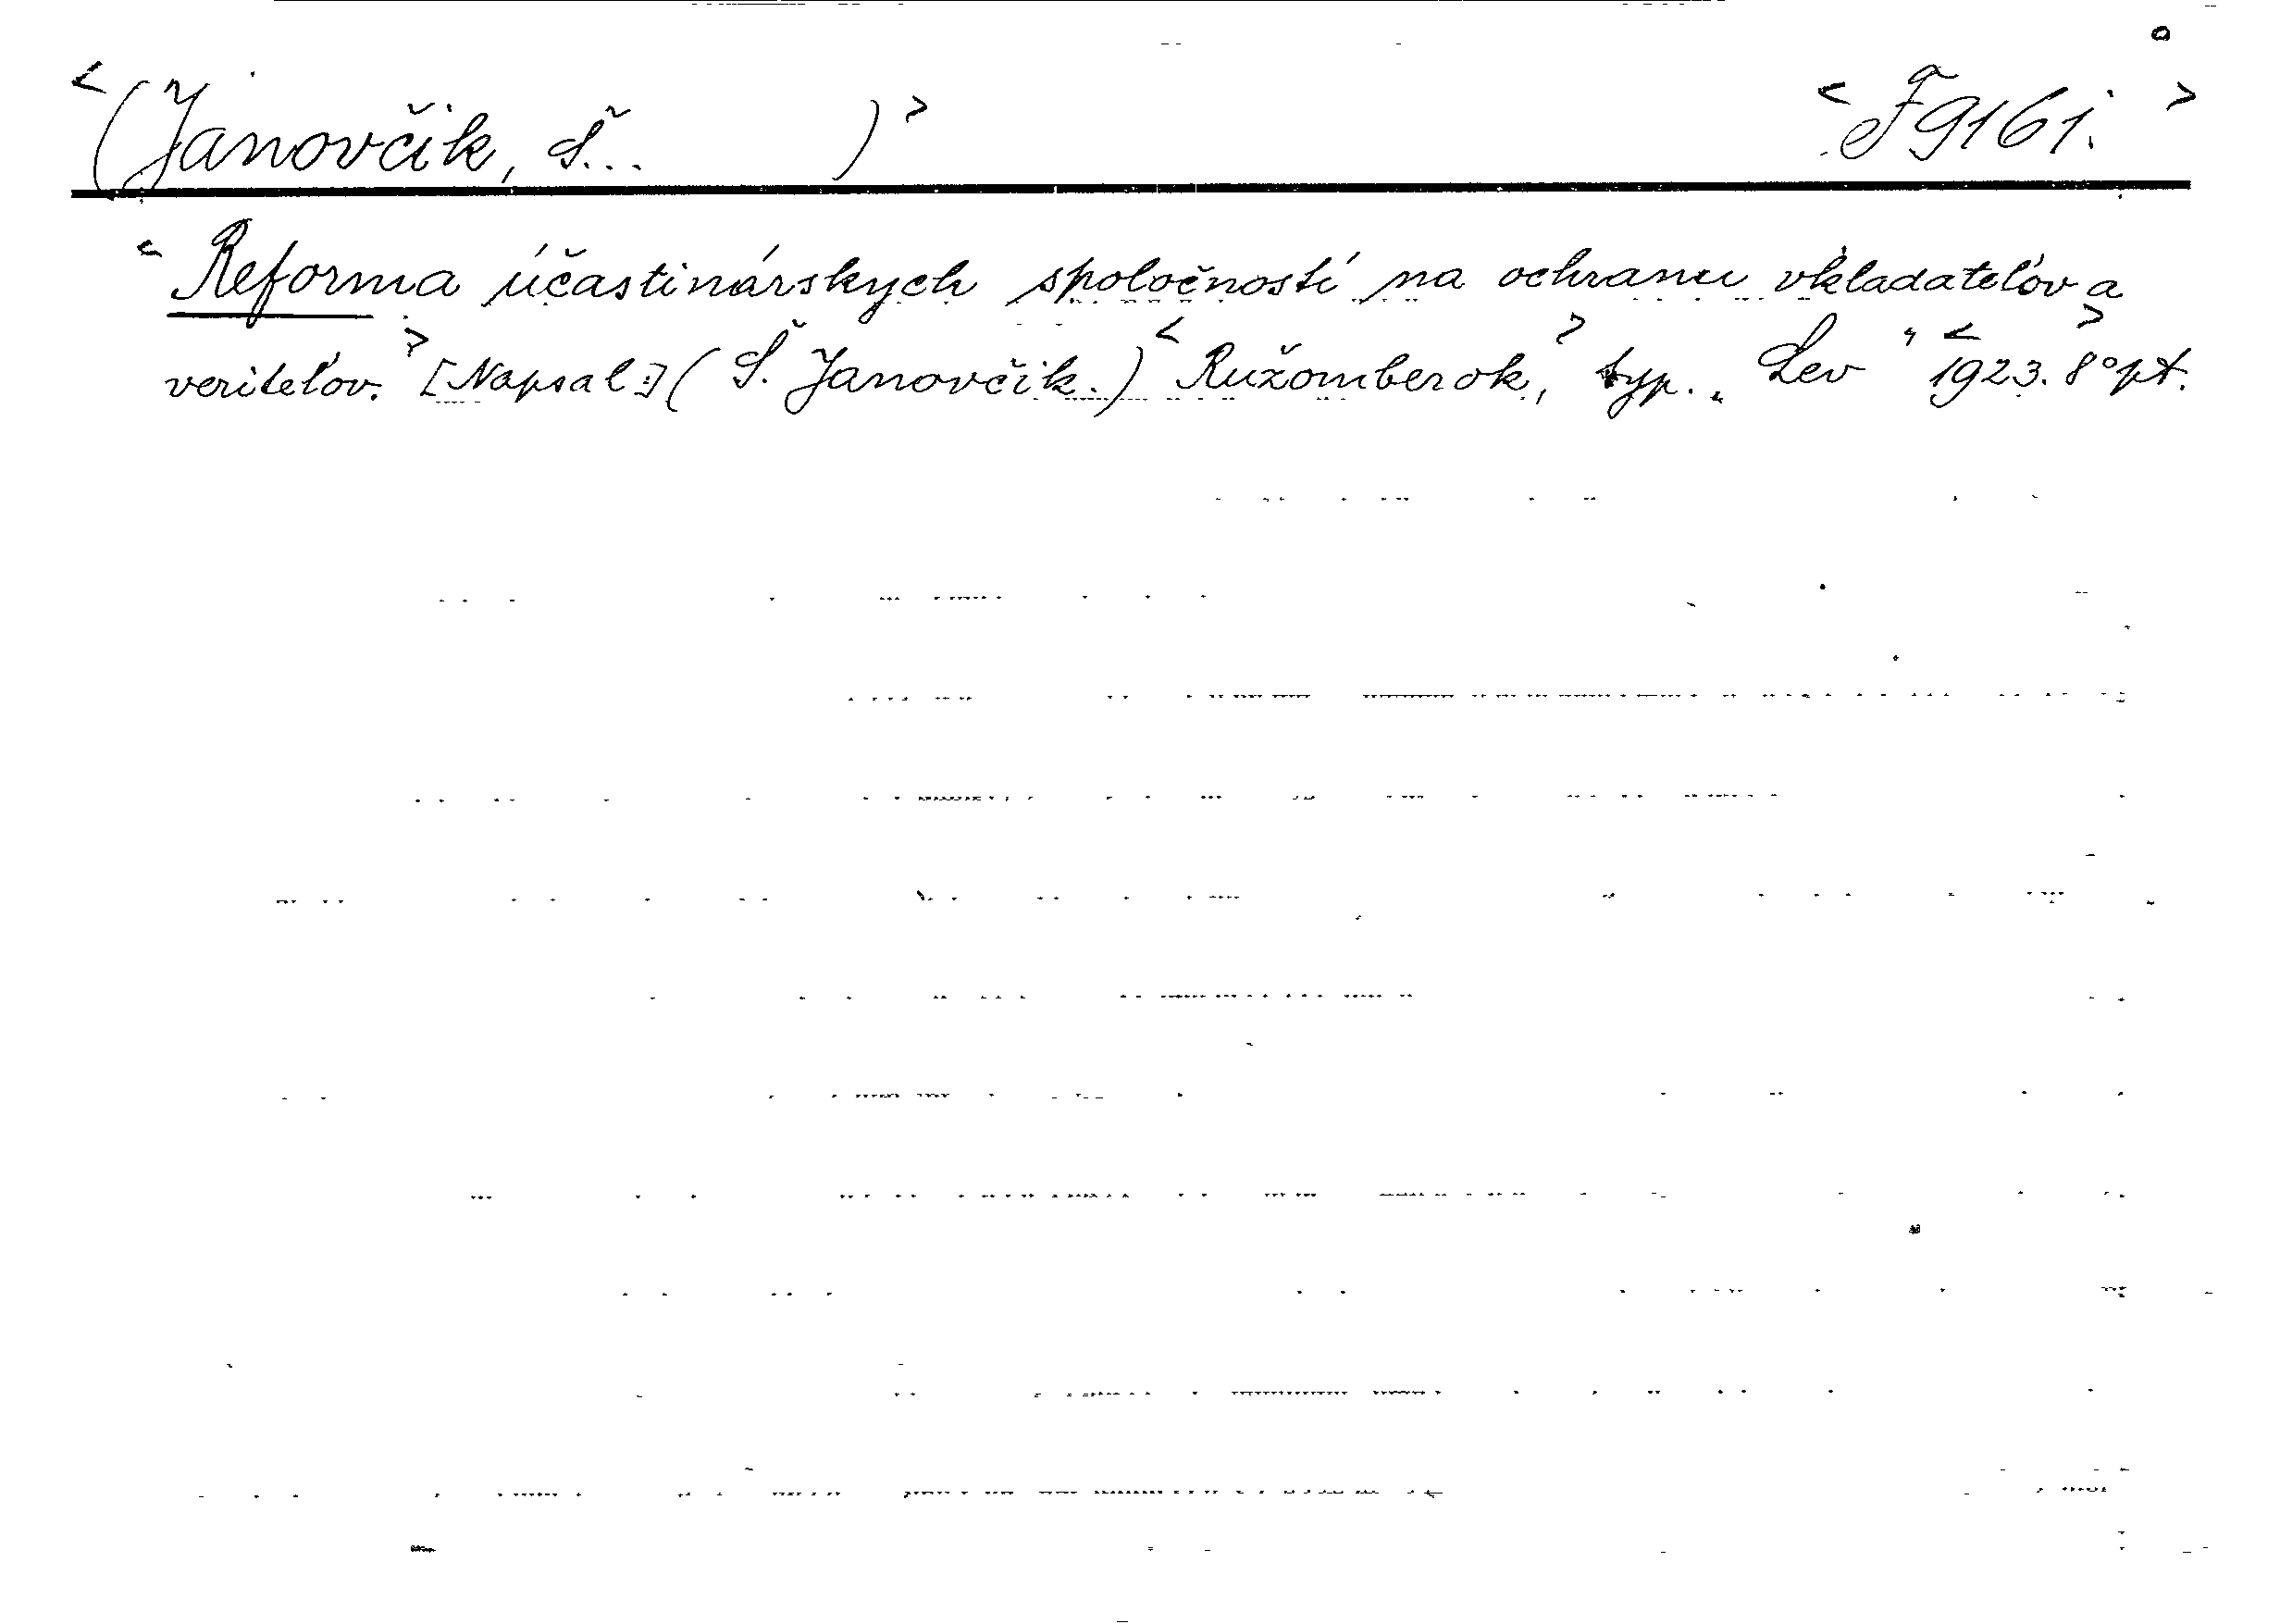 <(Janovčik, Š... )> <F 9161.>
<Reforma účastinárskych spoločností na ochranu vkladateľov a
veriteľov.> [Napsal:] (Š. Janovčik.) <Ružomberok,> typ. „Lev“ <1923.> 8° pt.